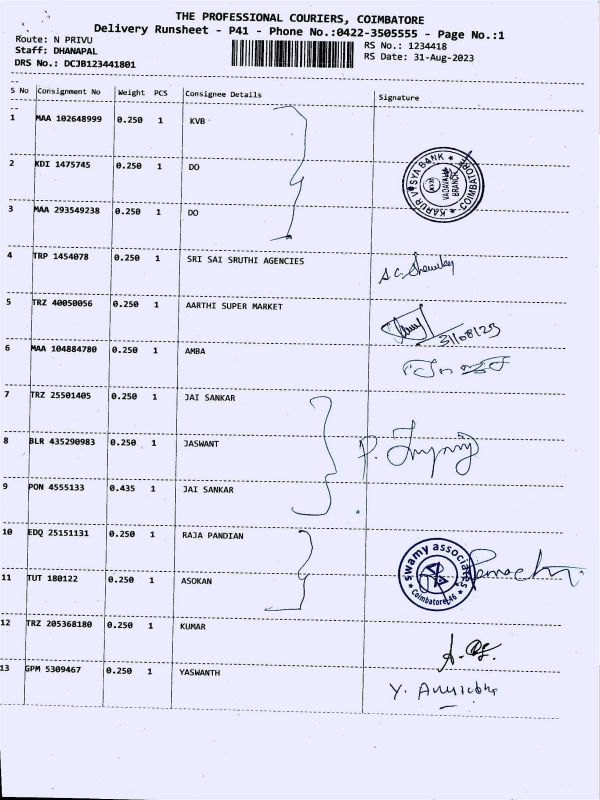 THE PROFESSIONAL COURIERS, COIMBATORE
Delivery Runsheet - P41 - Phone No.:0422-3505555 - Page No.:1
Route: N PRIVU
RS No.: 1234418
Staff: DHANAPAL
RS Date: 31-Aug-2023
DRS No.: DCJB123441801
S No Consignment No Weight PCS Consignee Details Signature
1 MAA 102648999 0.250 1 KVB
2 KDI 1475745 0.250 1 DO
KARUR VYSYA BANK
VADAVALLI BRANCH
COIMBATORE
3 MAA 293549238 0.250 1 DO
4 TRP 1454078 0.250 1 SRI SAI SRUTHI AGENCIES
5 TRZ 40050056 0.250 1 AARTHI SUPER MARKET
31/08/23
6 MAA 104884780 0.250 1 AMBA
7 TRZ 25501405 0.250 1 JAI SANKAR
8 BLR 435290983 0.250 1 JASWANT
9 PON 4555133 0.435 1 JAI SANKAR
10 EDQ 25151131 0.250 1 RAJA PANDIAN
swamy associates
Coimbatore-46
11 TUT 180122 0.250 1 ASOKAN
12 TRZ 205368180 0.250 1 KUMAR
13 GPM 5309467 0.250 1 YASWANTH